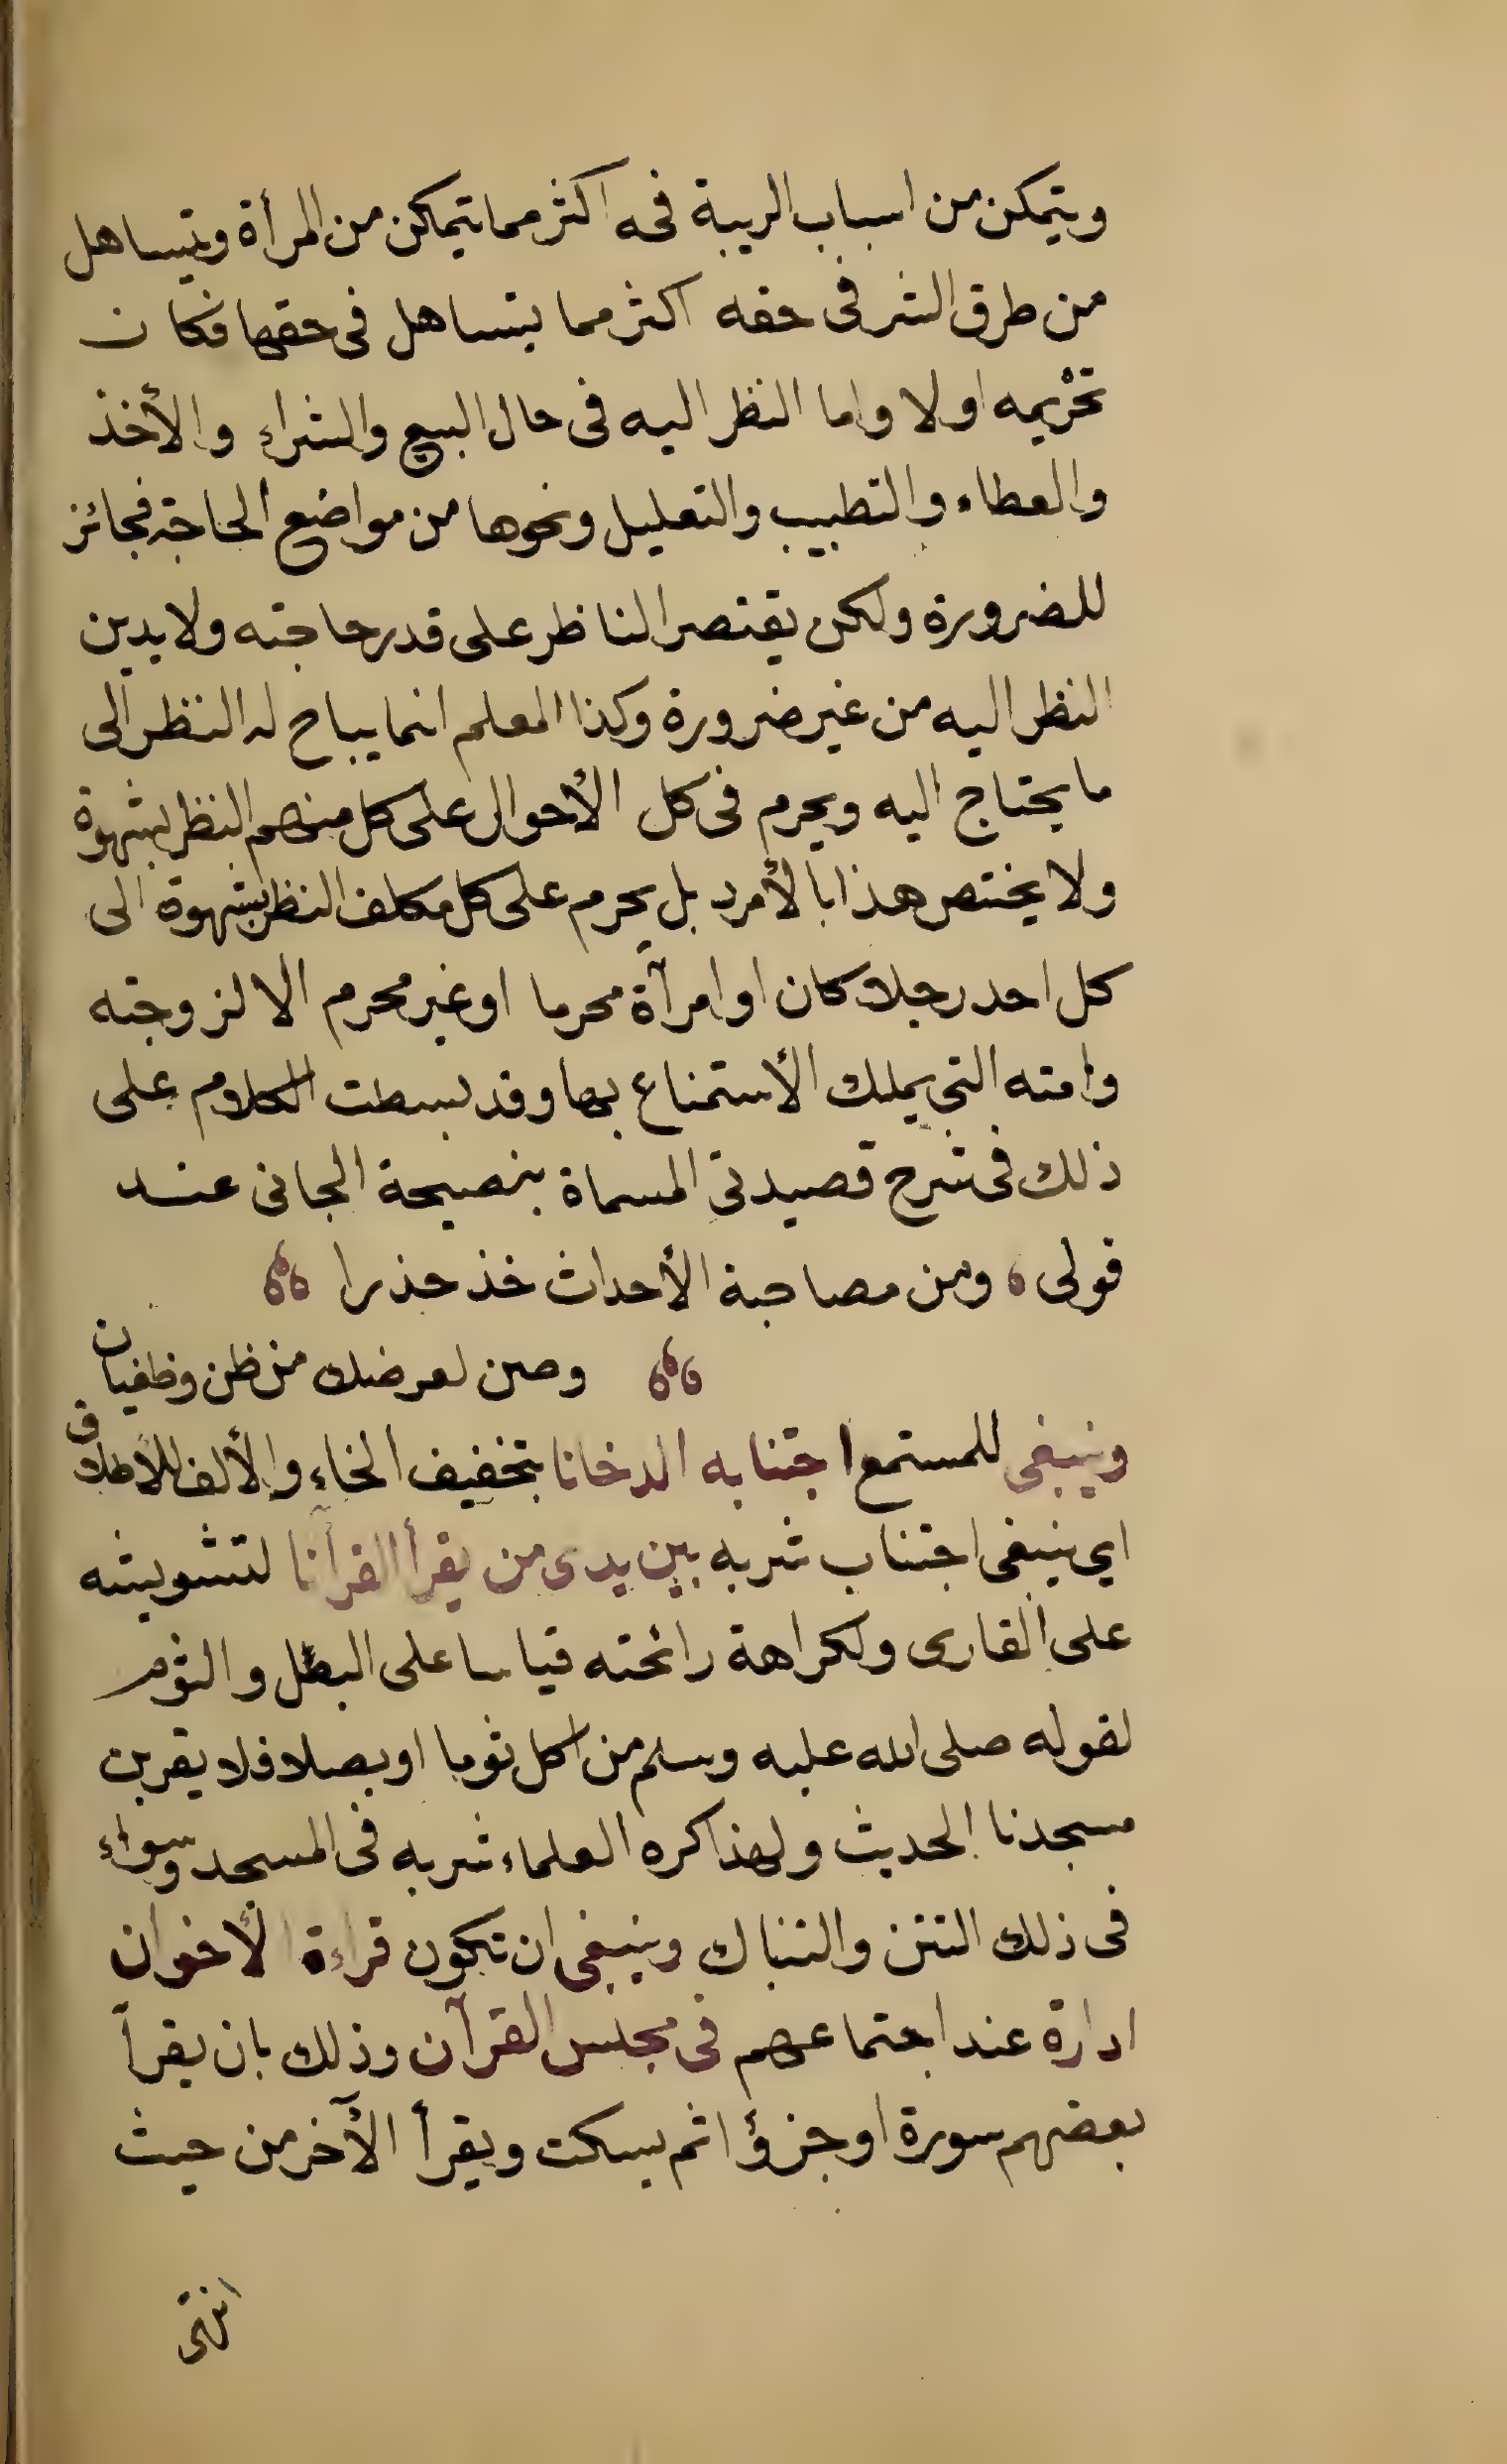 ويتمكن من اسباب الريبة فى حقه اكثر مما يتمكن من المرأة ويتساهل
من طرق الشر فى حقه اكثر مما يتساهل فى حقها فكان
تحريمه اولا واما النظر اليه فى حال البيع والشراء والأخذ
والعطاء والتطبيب والتعليل ونحوها من مواضع الحاجة فجائز
للضرورة ولكن يقتصر الناظر على قدر حاجته ولا يديم
النظر اليه من غير ضرورة وكذا المعلم انما يباح له النظر الى
ما يحتاج اليه ويحرم فى كل الأحوال على كل منهم النظر بشهوة
ولا يختص هذا بالأمرد بل يحرم على كل مكلف النظر بشهوة الى
كل احد رجلا كان او امرأة محرما او غير محرم الا لزوجته
وامته التى يملك الأستمتاع بها وقد بسطت الكلام على
ذلك فى شرح قصيدتى المسماة بنصيحة الجانى عند
قولى ومن مصاحبة الأحداث خذ حذرا
وصن لعرضك من ظن وطغيان
وينبغى للمستمع اجتنابه الدخانا بتخفيف الخاء والألف للاطلاق
اي ينبغى اجتناب شربه بين يدى من يقرأ القرآنا لتشويشه
على القارى ولكراهة رائحته قياسا على البصل والثوم
لقوله صلى الله عليه وسلم من اكل ثوما او بصلا فلا يقربن
مسجدنا الحديث ولهذا كره العلماء شربه فى المسجد وسواء
فى ذلك التتن والتنباك وينبغى ان تكون قراءة الأخوان
ادارة عند اجتماعهم فى مجلس القرآن وذلك بان يقرأ
بعضهم سورة او جزؤا ثم يسكت ويقرأ الآخر من حيث
انتهى